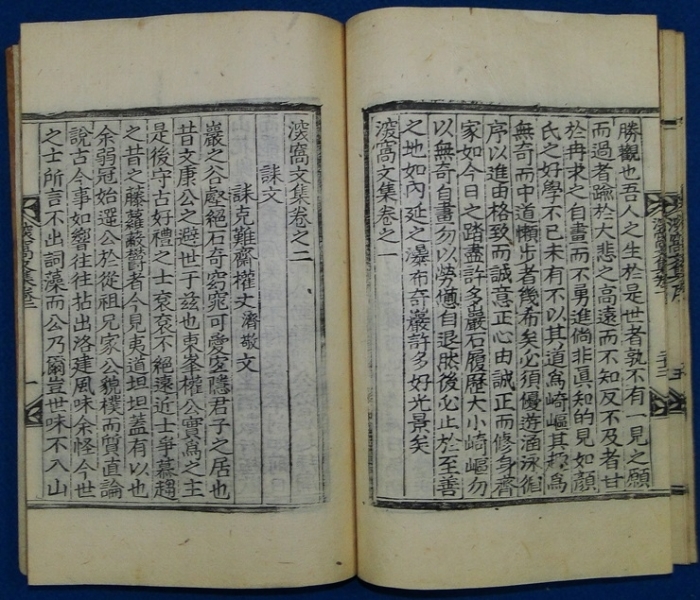 勝觀也吾人之生於是世者孰不有一見之願
而過者踰於大悲之高遠而不知反不及者甘
於冉求之自畫而不勇進倘非眞知的見如顔
氏之好學不已未有不以其道爲崎嶇其趨爲
無奇而中道懶步者幾希矣必須優游涵泳循
序以進由格致而誠意正心由誠正而修身齊
家如今日之踏盡許多巖石履歷大小崎嶇勿
以無奇自畫勿以勞憊自退然後必止於至善
之地如內延之瀑布奇巖許多好光景矣
窩文集卷之一
窩文集卷之二
誄文
誄克難齋權丈濟敬文
巖之谷處絕石奇窈窕可愛室隱君子之居也
昔文康公之避世于玆也東峯權公實爲之主
是後守古好禮之士袞袞不絕遠近士爭慕趨
之昔之藤蘿蔽鬱者今見夷道坦坦蓋有以也
余弱冠始選公於從祖兄家公貌樸而質直論
說古今事如響往往拈出洛建風味余怪今世
之士所言不出詞藻而公乃爾豈世味不入山